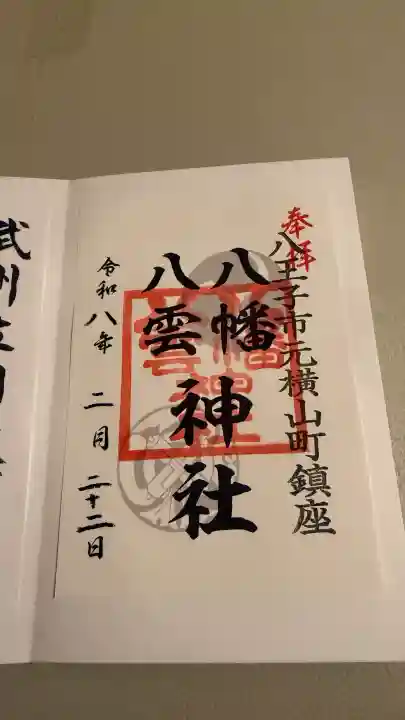 奉拝
八王子市元横山町鎮座
八幡
八雲
神社
令和八年 二月 二十二日
武州